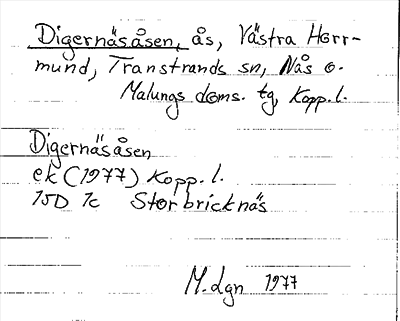 Digernäsåsen, ås, Västra Horr-
mund, Transtrands sn, Nås o.
Malungs doms. tg, Kopp. l.
Digernäsåsen
ek (1977) Kopp. l.
15D 1c Storbricknäs
M. Lgn 1977